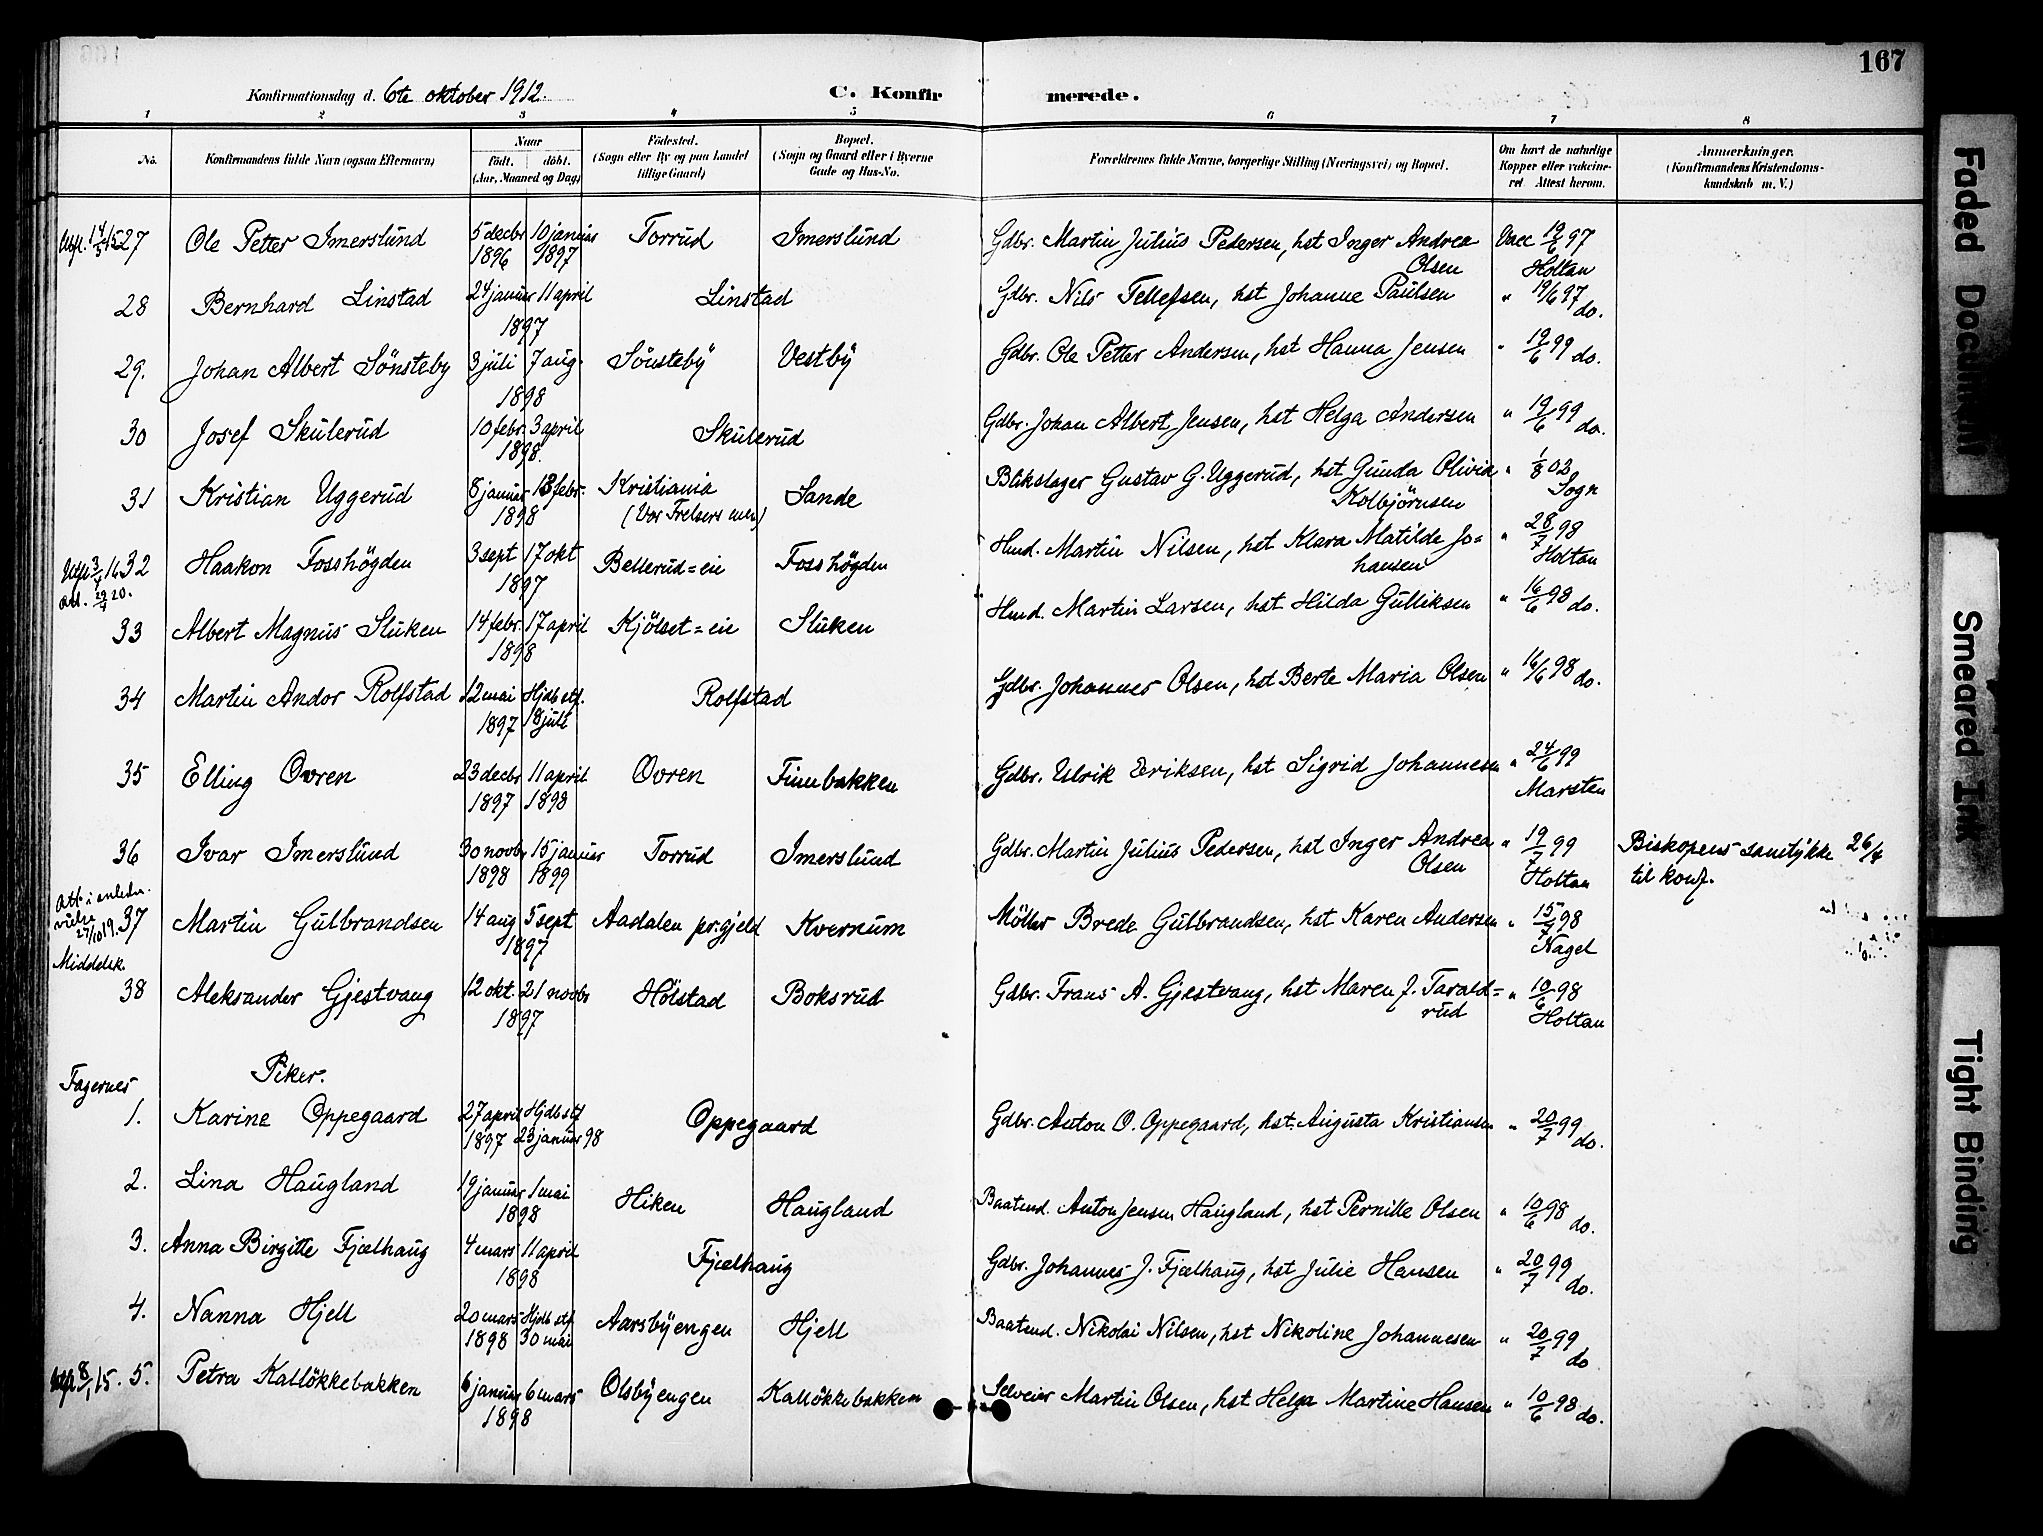 167
Konfirmationsdag d. 6te oktober 1912.
C. Konfirmerede.
1 2 3 4 5 6 7 8
No.
Konfirmandens fulde Navn (ogsaa Efternavn)
Naar
født. døbt.
(Aar, Maaned og Dag)
Fødested.
(Sogn eller By og paa Landet
tillige Gaard)
Bopæl.
(Sogn og Gaard eller i Byerne
Gade og Hus-No.
Forældrenes fulde Navne, borgerlige Stilling (Næringsvei) og Bopæl.
Om havt de naturlige
Kopper eller vakcine-
ret Attest herom.
Anmerkninger.
(Konfirmandens Kristendoms-
kundskab m. V.)
27 Ole Petter Imerslund 5 decbr 10 januar Torrud Imerslund Gdbr. Martin Julius Pedersen, hst Inger Andrea Vacc 19/6 97
1896 1897 Olsen Holtan
28 Bernhard Linstad 24 januar 11 april Linstad Gdbr. Nils Tellefsen, hst Johanne Paulsen " 19/6 97 do.
1897
29. Johan Albert Sönsteby 3 juli 7 aug. Sönsteby Vestby Gdbr. Ole Petter Andersen, hst Hanna Jensen " 19/6 99 do.
1898
30 Josef Skulerud 10 febr. 3 april Skulerud Gdbr. Johan Albert Jensen, hst Helga Andersen " 19/6 99 do.
1898.
31 Kristian Uggerud 8 januar 13 febr. Kristiania Sande Blikslager Gustav G. Uggerud, hst Gunda Olivia " 1/8 03
1898 (Vor Frelsers men) Kolbjörnsen Sogn
32 Haakon Fosshögden 3 sept 17 okt Bellerud=eie Fosshögden Hmd. Martin Nilsen, hst Klara Matilde Jo= " 28/7 98
1897 hansen Holtan
33 Albert Magnus Sluken 14 febr. 17 april Kjölset=eie Sluken Hmd. Martin Larsen, hst Hilda Gulliksen " 16/6 98 do.
1898
34 Martin Andor Rolfstad 12 mai Hjdb stf. Rolfstad Gdbr. Johannes Olsen, hst Berte Maria Olsen " 16/6 98 do.
1897 18 juli
35 Elling Ovren 23 decbr 11 april Ovren Finnbakken Gdbr. Ulrik Eriksen, hst Sigrid Johannesen " 24/6 99
1897 1898 Marsten
36 Ivar Imerslund 30 novbr 15 januar Torrud Imerslund Gdbr. Martin Julius Pedersen, hst Inger Andrea " 19/7 99 Biskopens samtykke 26/4
1898 1899 Olsen Holtan til konf.
37 Martin Gulbrandsen 14 aug 5 sept Aadalen pr.gjeld Kvernum Möller Brede Gulbrandsen, hst Karen Andersen " 15/7 98
1897 Nagel
Middelsk.
38 Aleksander Gjestvang 12 okt. 21 novbr Holstad Boksrud Gdbr. Frans A. Gjestvang, hst Maren J. Tarald= " 10/6 98
1897 rud Holtan
Piker.
Fagernes
1. Karine Oppegaard 27 april Hjdb stf Oppegaard Gdbr. Anton O. Oppegaard, hst. Augusta Kristiansen " 20/7 99 do.
1897 23 januar 98
2. Lina Haugland 19 januar 1 mai Hiken Haugland Baatmd. Anton Jensen Haugland, hst Pernille Olsen " 10/6 98 do.
1898
3. Anna Birgitte Fjælhaug 4 mars 11 april Fjælhaug Gdbr. Johannes J. Fjælhaug, hst Julie Hansen " 20/7 99 do.
1898
4. Nanna Hjell 20 mars Hjdb stf Aarsbyengen Hjell Baatmd. Nikolai Nilsen, hst Nikoline Johannesen " 20/7 99 do
1898 30 mai
5. Petra Kalløkkebakken 6 januar 6 mars Olsbyengen Kalløkkebakken Selveier Martin Olsen, hst Helga Martine Hansen " 10/6 98 do.
1898
Faded Document
Smeared Ink
Tight Binding